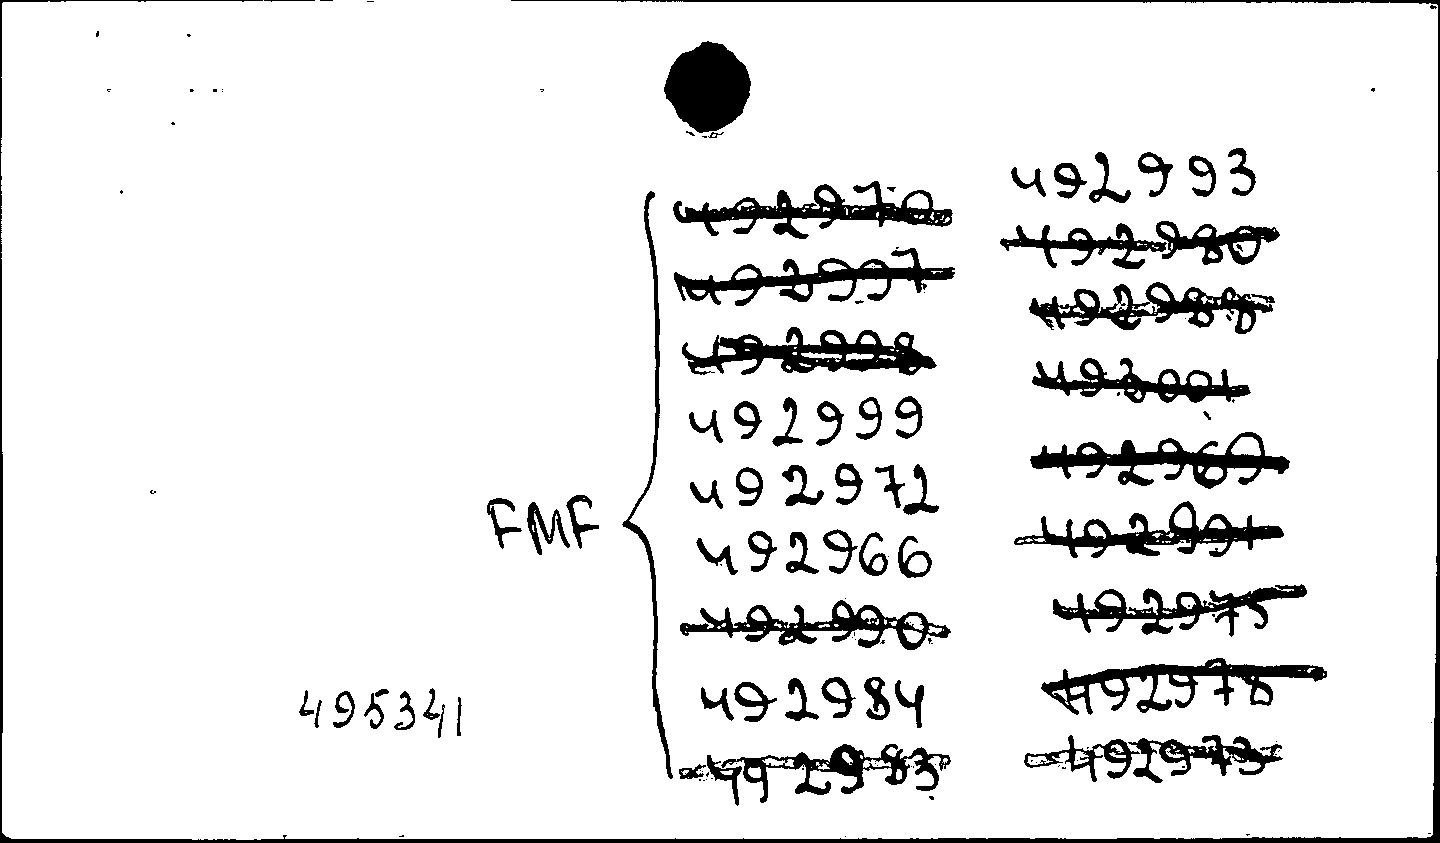 492970
492997
492998
492999
492972
FMF
492966
492990
492984
492983
492993
492980
492988
493001
492969
492991
492975
492978
492973
495341